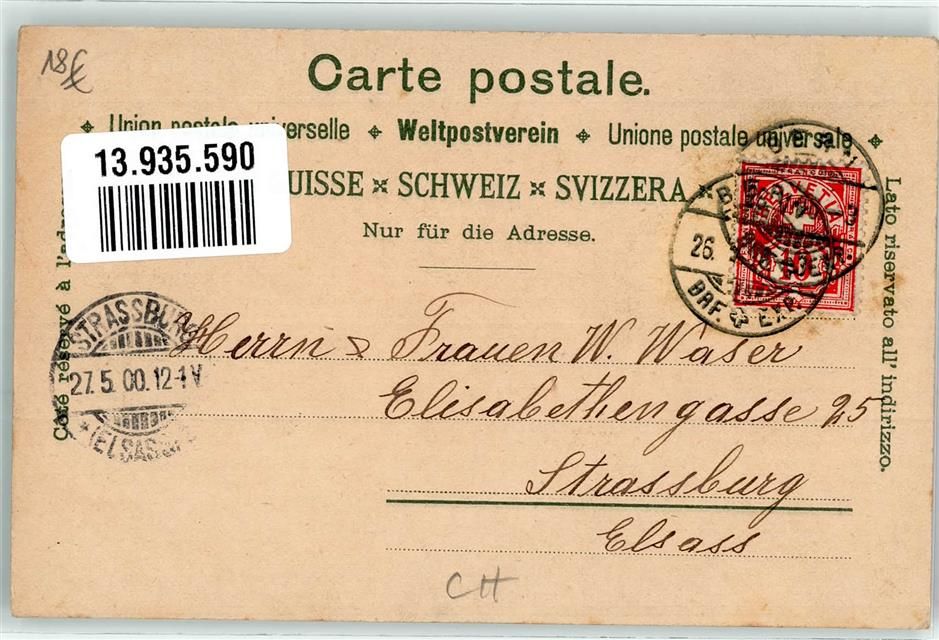 18 €
Carte postale.
Union postale universelle Weltpostverein Unione postale universale
13.935.590
UISSE SCHWEIZ SVIZZERA
Nur für die Adresse.
Côté réservé à l'adresse
Lato riservato all' indirizzo.
FRANCO
HELVETIA
10
BERN
26.
BRF. EXP.
STRASSBURG
27.5.00.12-1V
(ELSASS)
Herrn & Frauen W. Waser
Elisabethengasse 25
Strassburg
Elsass
CH